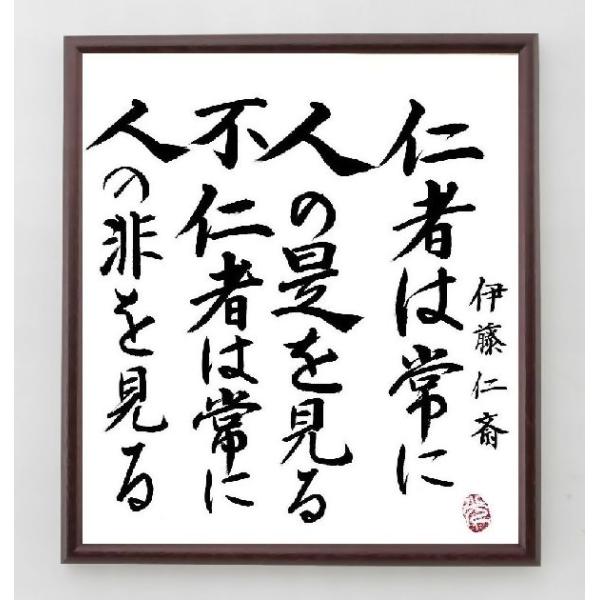 伊藤仁斎
仁者は常に
人の是を見る
不仁者は常に
人の非を見る